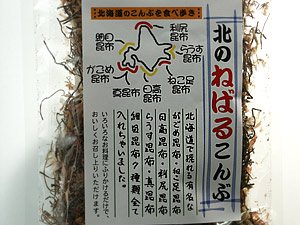 北海道のこんぶを食べ歩き
北のねばるこんぶ
利尻
昆布
細目
昆布
らうす
昆布
がごめ
昆布
ねこ足
昆布
日高
昆布
真昆布
北海道で採れる有名な
がごめ昆布・ねこ足昆布
日高昆布・利尻昆布
らうす昆布・真昆布
細目昆布7種類全て
入れちゃいました。
いろいろなお料理にふりかけるだけで、
おいしくお召し上りいただけます。